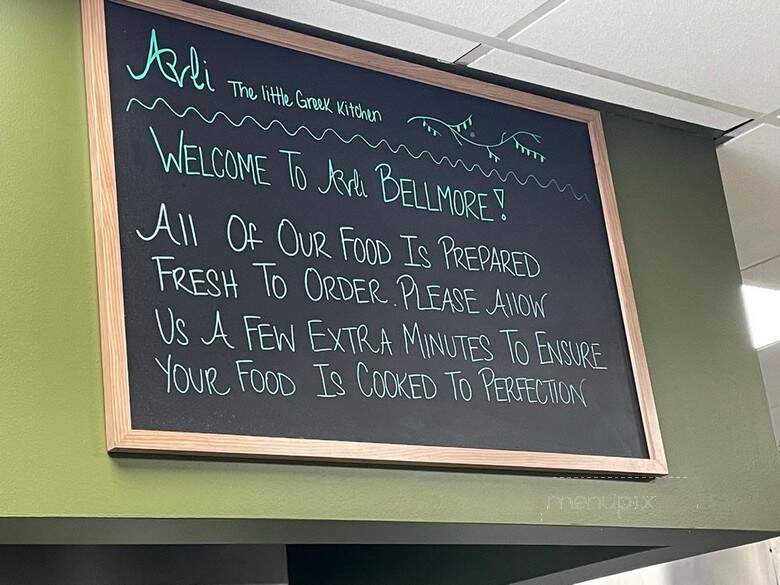 Avli The little Greek Kitchen
WELCOME TO Avli BELLMORE!
All Of OUR FOOD IS PREPARED
FRESH TO ORDER. PLEASE AllOW
US A FEW EXTRA MINUTES TO ENSURE
YOUR FOOD IS COOKED TO PERFECTION
menupix